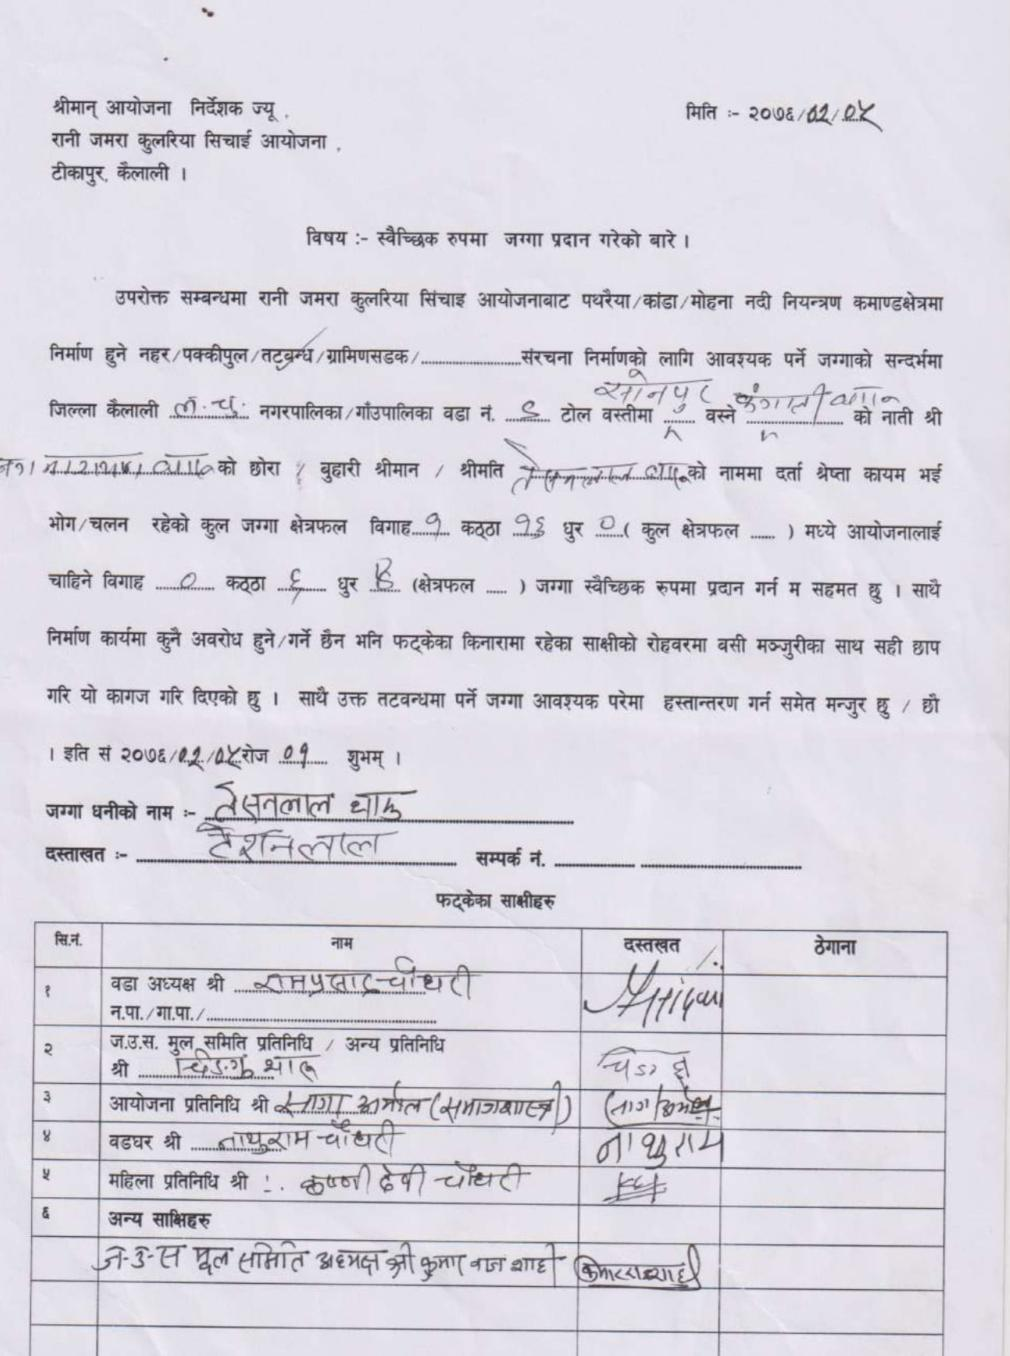 श्रीमान् आयोजना निर्देशक ज्यू ,
मिति :- २०७६/०२/०५
रानी जमरा कुलरिया सिचाई आयोजना ,
टीकापुर, कैलाली ।
विषय :- स्वैच्छिक रुपमा जग्गा प्रदान गरेको बारे ।
उपरोक्त सम्बन्धमा रानी जमरा कुलरिया सिंचाइ आयोजनाबाट पथरैया/कांडा/मोहना नदी नियन्त्रण कमाण्डक्षेत्रमा
निर्माण हुने नहर/पक्कीपुल/तटबन्ध/ग्रामिणसडक/....................संरचना निर्माणको लागि आवश्यक पर्ने जग्गाको सन्दर्भमा
जिल्ला कैलाली ल.चु. नगरपालिका/गाँउपालिका वडा नं. टोल वस्तीमा सोनपुर वस्ने को नाती श्री
को छोरा / बुहारी श्रीमान / श्रीमति को नाममा दर्ता श्रेष्ता कायम भई
भोग/चलन रहेको कुल जग्गा क्षेत्रफल विगाह १ कठ्ठा १६ धुर ० ( कुल क्षेत्रफल ...... ) मध्ये आयोजनालाई
चाहिने विगाह ० कठ्ठा ६ धुर (क्षेत्रफल ..... ) जग्गा स्वैच्छिक रुपमा प्रदान गर्न म सहमत छु । साथै
निर्माण कार्यमा कुनै अवरोध हुने/गर्ने छैन भनि फट्केका किनारामा रहेका साक्षीको रोहवरमा वसी मञ्जुरीका साथ सही छाप
गरि यो कागज गरि दिएको छु । साथै उक्त तटवन्धमा पर्ने जग्गा आवश्यक परेमा हस्तान्तरण गर्न समेत मन्जुर छु / छौ
। इति सं २०७६/०२/०५ रोज ०१ शुभम् ।
जग्गा धनीको नाम :-
दस्ताखत :- टेशनलाल सम्पर्क नं. ................ ................................
फट्केका साक्षीहरु
सि.नं. नाम दस्तखत ठेगाना
१ वडा अध्यक्ष श्री रामप्रसाद चौधरी
न.पा./गा.पा./..............................................
२ ज.उ.स. मुल समिति प्रतिनिधि / अन्य प्रतिनिधि
श्री
३ आयोजना प्रतिनिधि श्री (समाजशास्त्री)
४ वडघर श्री नाथुराम चौधरी नाथुराम
५ महिला प्रतिनिधि श्री :. कृष्णी देवी चौधरी
६ अन्य साक्षिहरु
ज-उ-स मूल समिति अध्यक्ष श्री कुमार शाही